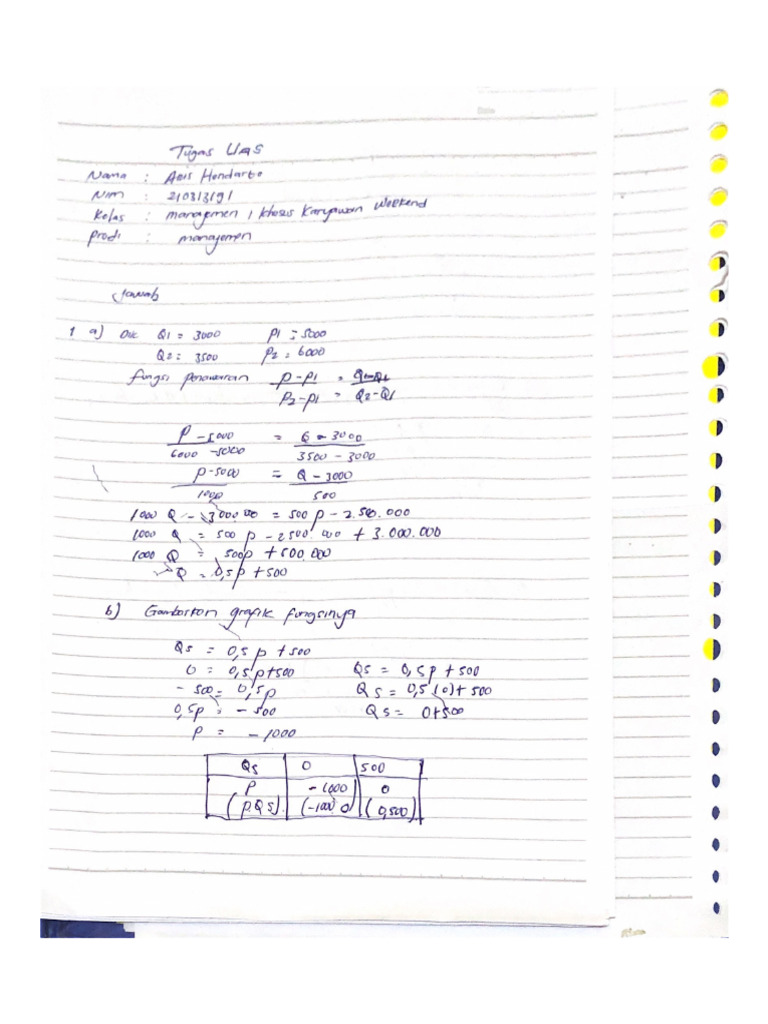 Tugas UAS
Nama : Hendarto
Nim : 210313191
Kelas : manajemen / Karyawan Weekend
prodi : manajemen
Jawab
1 a) Dik Q1 = 3000 P1 = 5000
Q2 = 3500 P2 = 6000
fungsi penawaran p - p1 = Q - Q1
P2 - p1 = Q2 - Q1
P - 5000 = Q - 3000
6000 - 5000 3500 - 3000
p - 5000 = Q - 3000
1000 500
1000 Q - 3000.000 = 500 p - 2.500.000
1000 Q = 500 p - 2500.000 + 3.000.000
1000 Q = 500p + 500.000
Q = 0,5p + 500
b) Gambarkan grafik fungsinya
Qs = 0,5 p + 500
0 = 0,5p+500 Qs = 0,5p + 500
- 500 = 0,5p Qs = 0,5 (0) + 500
0,5p = - 500 Qs = 0+500
P = - 1000
Qs 0 500
P - 1000 0
(p.Qs) (-1000 0) (0,500)